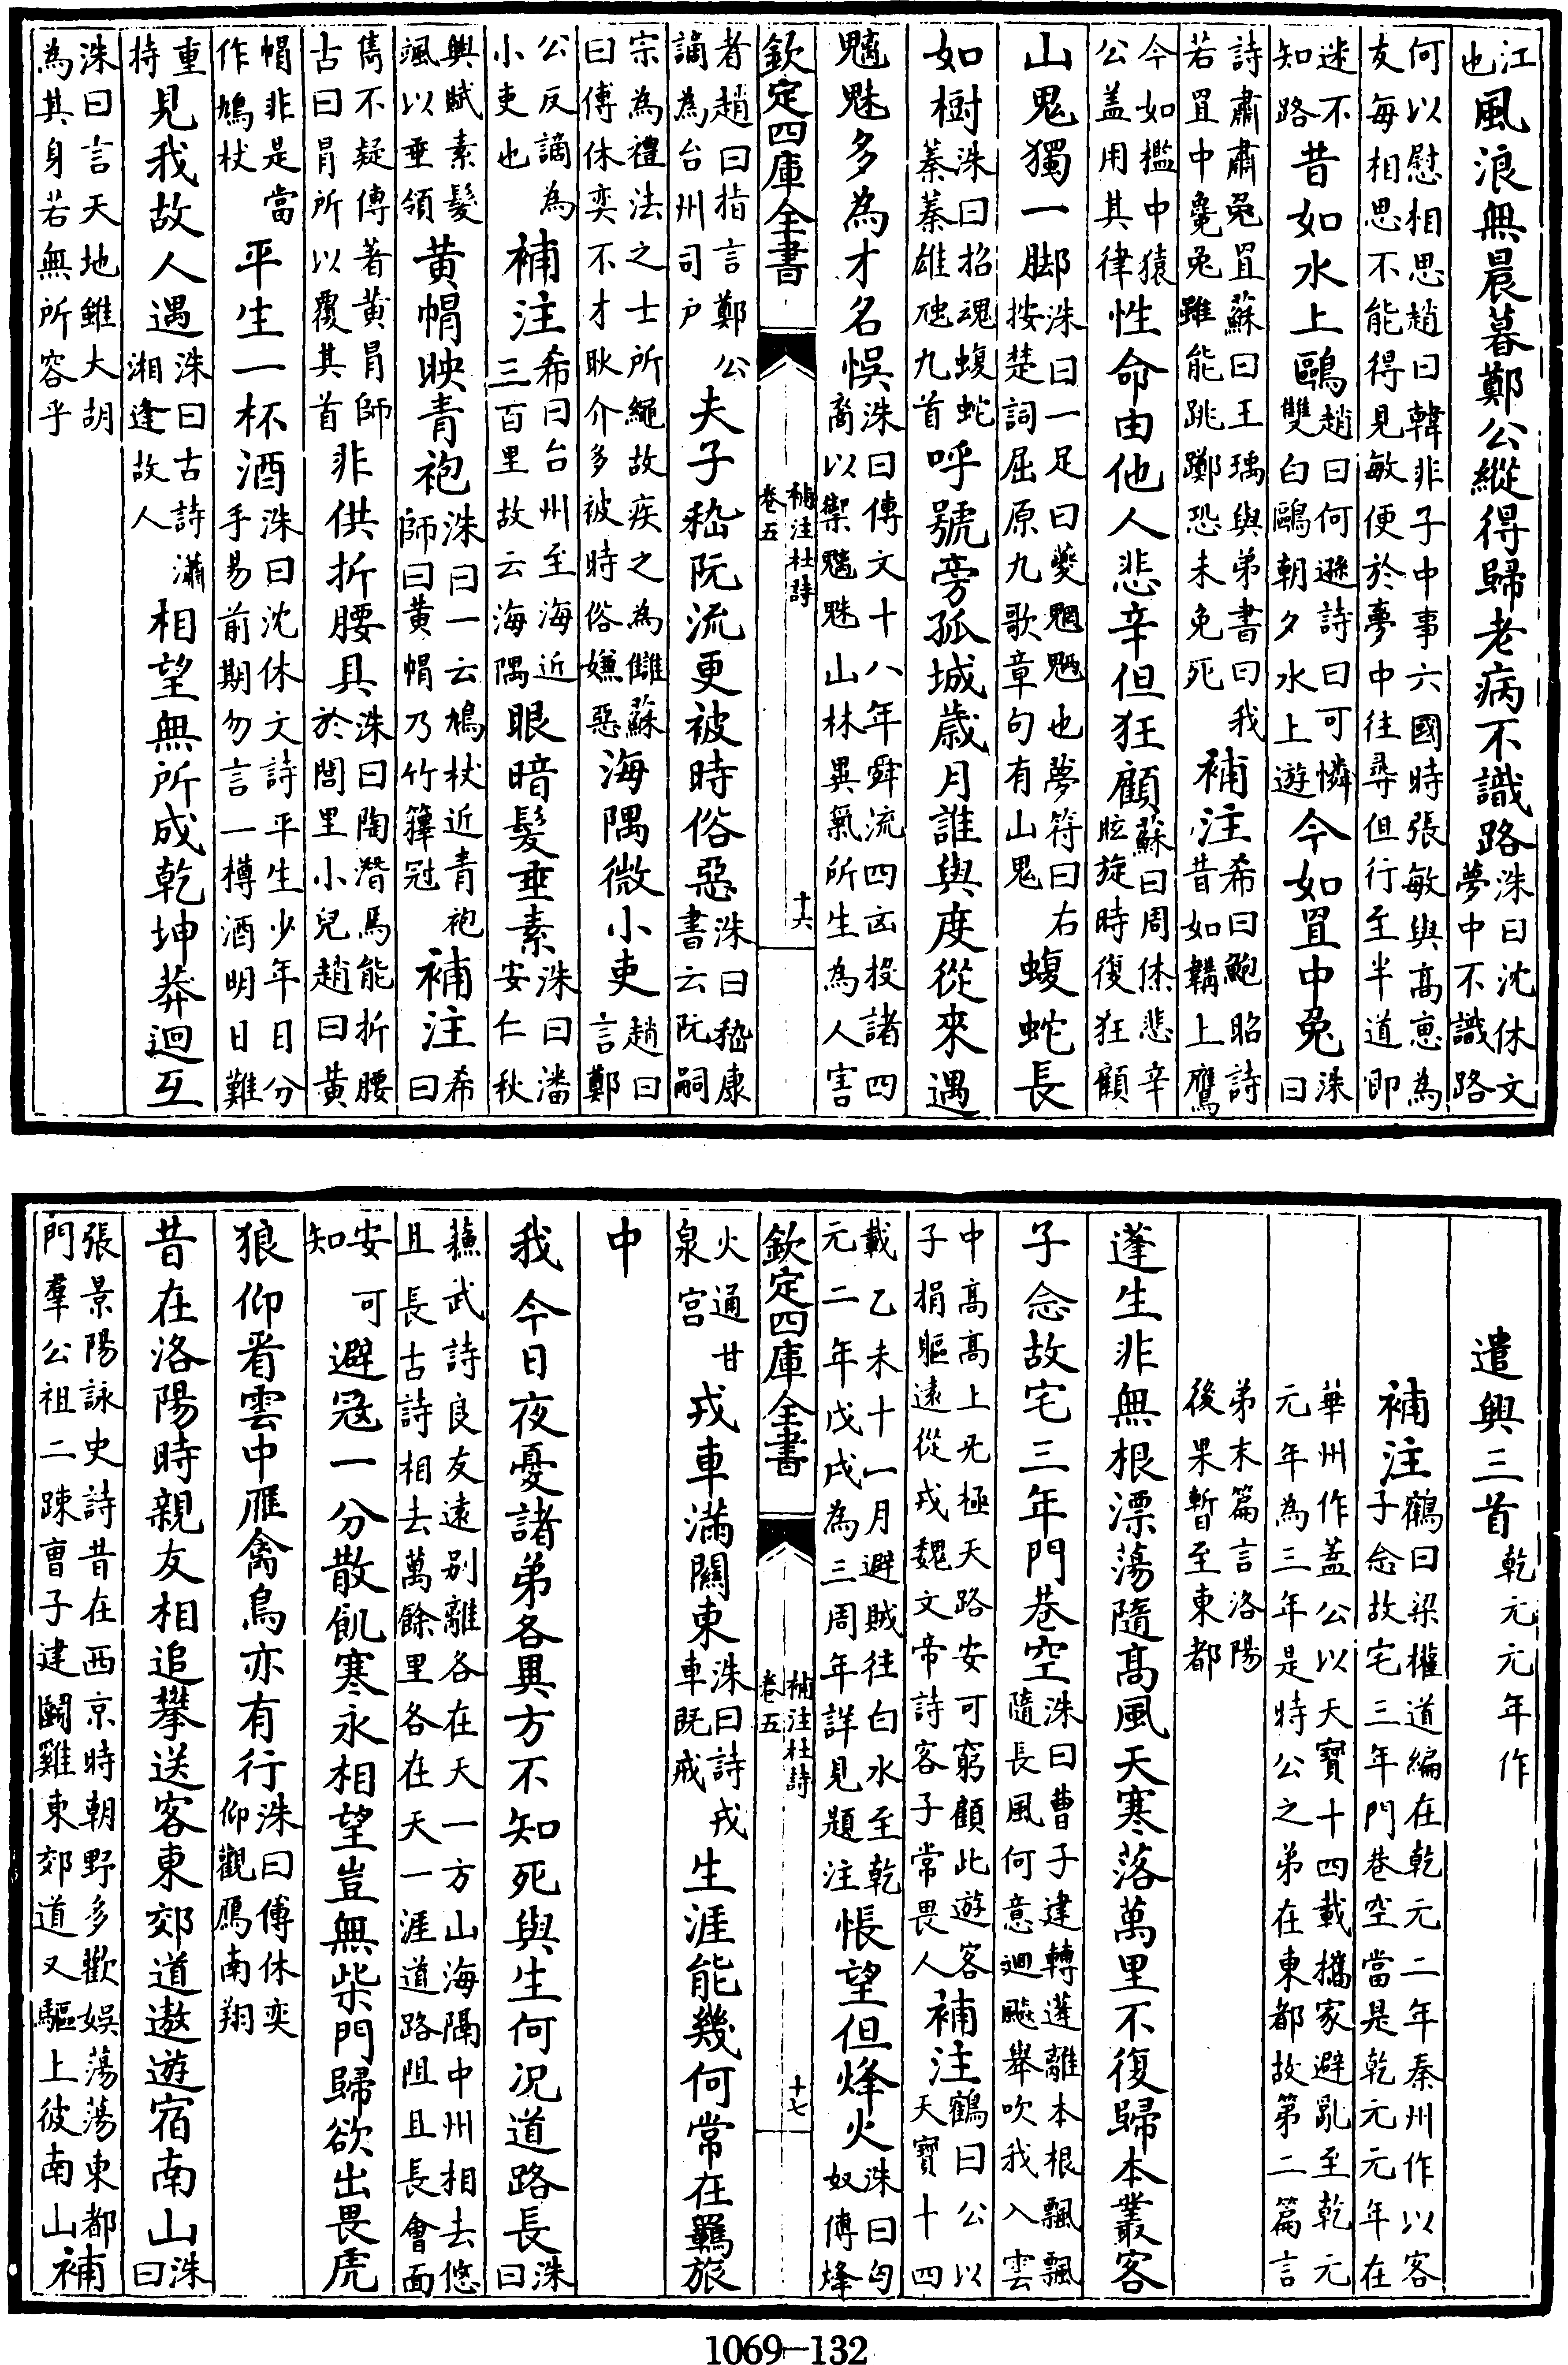 江也風浪無晨暮鄭公縱得歸老病不識路洙曰沈休文夢中不識路
何以慰相思趙曰韓非子中事六國時張敏與高惠為
友每相思不能得見敏便於夢中往尋但行至半道即
迷不知路昔如水上鷗趙曰何遜詩曰可憐雙白鷗朝夕水上遊今如罝中兔洙曰
詩肅肅兔罝蘇曰王瑀與弟書曰我若罝中毚兔雖能跳躑恐未免死補注希曰鮑昭詩昔如韝上鷹
今如檻中猿公盖用其律性命由他人悲辛但狂顧蘇曰周倷悲辛眩旋時復狂顧
山鬼獨一脚洙曰一足曰夔魍魎也夢符曰右按楚詞屈原九歌章句有山鬼蝮蛇長
如樹洙曰招魂蝮蛇蓁蓁雄虺九首呼號旁孤城歲月誰與度從來遇
魑魅多為才名悞洙曰傳文十八年舜流四凶投諸四裔以禦魑魅山林異氣所生為人害
欽定四庫全書 補注杜詩 卷五 十六
者趙曰指言鄭公謫為台州司户夫子嵇阮流更被時俗惡洙曰嵇康書云阮嗣
宗為禮法之士所繩故疾之為讎蘇曰傅休奕不才耿介多被時俗嫌惡海隅微小吏趙曰言鄭
公反謫為小吏也補注希曰台州至海近三百里故云海隅眼暗髮垂素洙曰潘安仁秋
興賦素髮颯以垂領黄帽映青袍洙曰一云鳩杖近青袍師曰黄帽乃竹籜冠補注希曰
雋不疑傳著黄冐師古曰冐所以覆其首非供折腰具洙曰陶潛焉能折腰於閭里小兒趙曰黄
帽非是當作鳩杖平生一杯酒洙曰沈休文詩平生少年日分手易前期勿言一樽酒明日難
重持見我故人遇洙曰古詩瀟湘逢故人相望無所成乾坤莽迴互
洙曰言天地雖大胡為其身若無所容乎
遣興三首乾元元年作
補注鶴曰梁權道編在乾元二年秦州作以客子念故宅三年門巷空當是乾元元年在
華州作蓋公以天寶十四載攜家避亂至乾元元年為三年是時公之弟在東都故第二篇言
弟末篇言洛陽後果暫至東都
蓬生非無根漂蕩隨高風天寒落萬里不復歸本叢客
子念故宅三年門巷空洙曰曹子建轉蓬離本根飄飄隨長風何意迴飈舉吹我入雲
中高高上无極天路安可窮顧此遊客子捐軀遠從戎魏文帝詩客子常畏人補注鶴曰公以天寶十四
載乙未十一月避賊往白水至乾元二年戊戌為三周年詳見題注悵望但烽火洙曰匈奴傳烽
欽定四庫全書 補注杜詩 卷五 十七
火通甘泉宫戎車滿關東洙曰詩戎車既戒生涯能幾何常在羈旅
中
我今日夜憂諸弟各異方不知死與生何况道路長洙曰
蘇武詩良友遠别離各在天一方山海隔中州相去悠且長古詩相去萬餘里各在天一涯道路阻且長會面
安可知避冦一分散飢寒永相望豈無柴門歸欲出畏虎
狼仰看雲中雁禽鳥亦有行洙曰傅休奕仰觀鴈南翔
昔在洛陽時親友相追攀送客東郊道遨遊宿南山洙曰
張景陽詠史詩昔在西京時朝野多歡娛蕩蕩東都門羣公祖二疎曹子建鬬雞東郊道又驅上彼南山補
1069-132